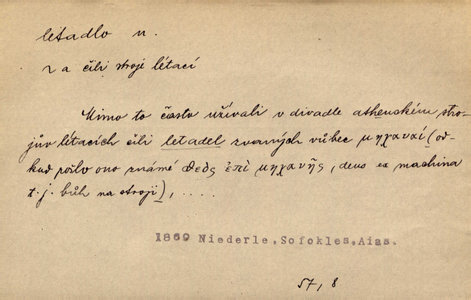 létadlo n.
z a čili stroje létací
Mimo to často užívali v divadle athenském stro-
jův létacích čili letadel zvaných vůbec μηχαναί (od-
kud pošlo ono známé θεὸς ἐπὶ μηχανῆς, deus ex machina
t. j. bůh na stroji), ....
1869 Niederle, Sofokles, Aias.
57, 8